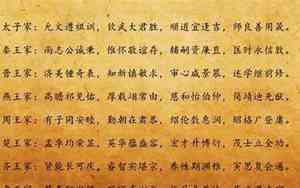 太子家:允文遵祖训,钦武大君胜,顺道宜逢吉,师良善用晟。
秦王家:尚志公诚秉,惟怀敬谊存,辅嗣资廉直,匡时永信惇。
晋王家:济美钟奇表,知新慎敏求,审心咸景慕,述学继前修。
燕王家:高瞻祁见祐,厚载翊常由,慈和怡伯仲,简靖迪先猷。
周王家:有子同安睦,勤朝在肃恭,绍伦敷惠润,昭恪广登庸。
楚王家:孟季均荣显,英华蕴盛容,宏才升博衍,茂士立全功。
齐王家:贤能长可庆,睿智实堪宗,养性期渊雅,寅思复会通。